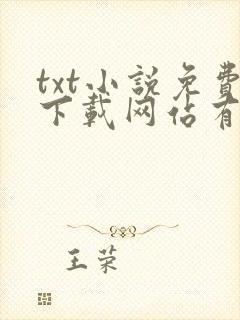 txt小説免費
下載网佔有
王荣